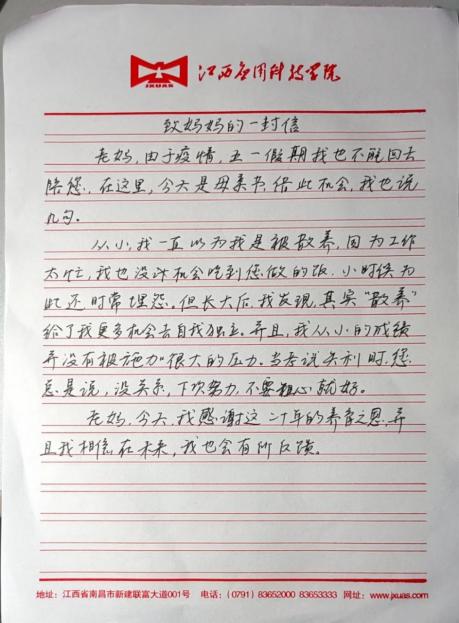 JXUAS
江西应用科技学院
致妈妈的一封信
老妈，由于疫情，五一假期我也不能回去
陪您，在这里，今天是母亲节，借此机会，我也说
几句。
从小，我一直以为我是被散养，因为工作
太忙，我也没法机会吃到您做的饭，小时候为
此还时常埋怨。但长大后，我发现，其实“散养”
给了我更多机会去自我独立。并且，我从小的成绩
并没有被施加很大的压力。当考试失利时，您
总是说，没关系，下次努力，不要粗心就好。
老妈，今天，我感谢这二十年的养育之恩，并
且我相信在未来，我也会有所反馈。
地址：江西省南昌市新建联富大道001号 电话：（0791）83652000 83653333 网址：www.jxuas.com